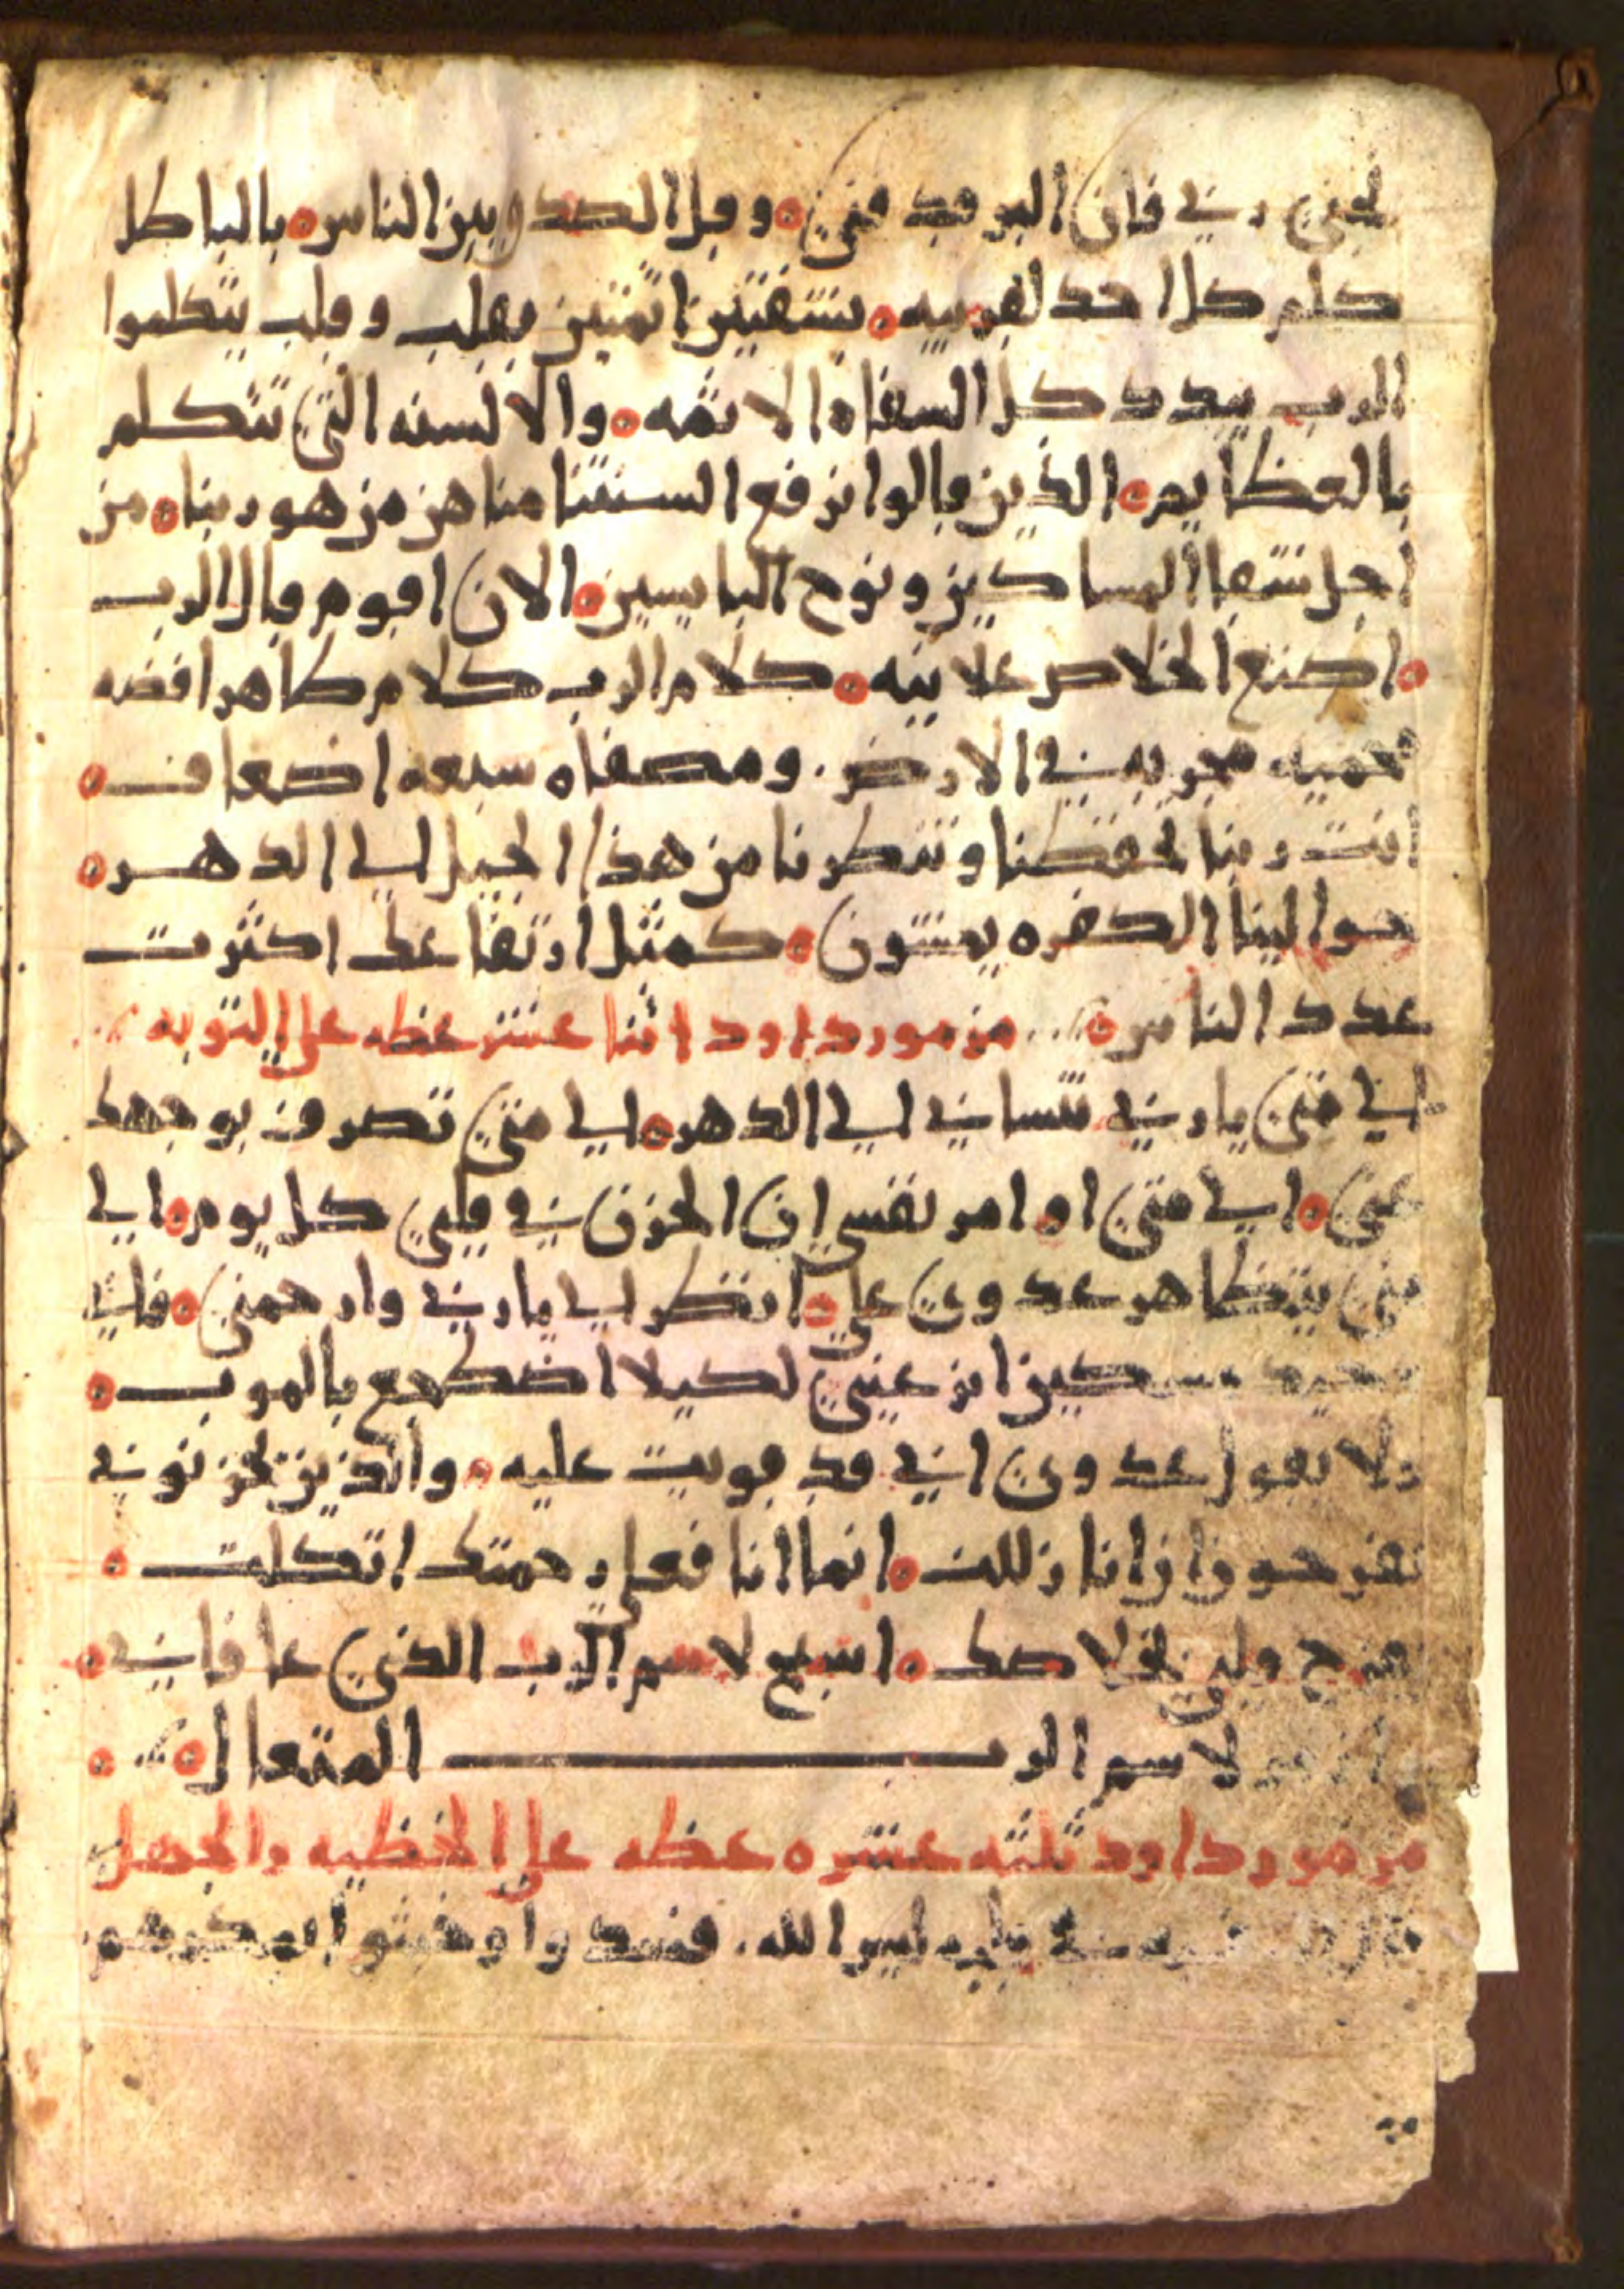 نجني ربي فان البر قد فني ۝ وقل الصدق بين الناس ۝ بالباطل
كلم كل احد لقريبه ۝ بشفتين اثمتين بقلب وقلب يتكلموا
الرب يبدد كل السفاه الاثمه ۝ والالسنه التي تتكلم
بالعظايم ۝ الذين قالوا نرفع السنتنا مناهن من هو ربنا ۝ من
اجل شقا المساكين ونوح البايسين ۝ الان اقوم قال الرب
۝ اصنع الخلاص علانيه ۝ كلام الرب كلام طاهر افضه
محميه مجربه في الارض . ومصفاه سبعه اضعاف ۝
انت ربنا تحفظنا وتنطرنا من هذا الجيل الي الدهر ۝
حوالينا الكفره يمشون ۝ كمثل ارتفاعك اكثرت
عدد الناس ۝ مزمور داود اثنا عشر عظه على التوبه
الي متى يا ربي تنساني الي الدهر ۝ الي متى تصرف بوجهك
عني ۝ الي متى اوامر نفسي ان الحزن في قلبي كل يوم ۝ الي
متى يتظاهر عدوي علي ۝ انظر الي يا ربي وارحمني ۝ فاني
وحيد مسكين انر عيني لكيلا اضطجع بالموت ۝
ولا يقول عدوي اني قد قويت عليه ۝ والذين يحزنوني
يفرحون ان انا زللت ۝ انما انا فعلى رحمتك اتكلت ۝
فرح قلبي بخلاصك ۝ اسبح لاسم الرب الذي عافاني ۝
لاسم الرب المتعال ۝
مزمور داود ثلثه عشره عظه على الخطيه والجهل
قال في قلبه ليس الله . فسدوا وخبثوا بمكرهم